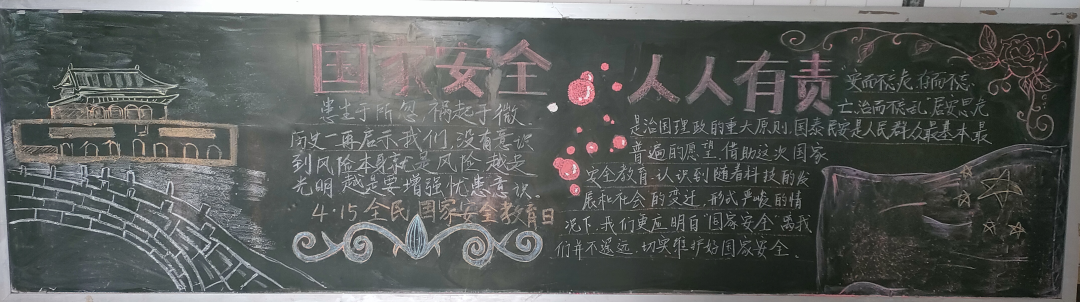 国家安全 人人有责
患生于所忽,祸起于微.
历史一再启示我们,没有意识
到风险本身就是风险 越是
光明 越是要增强忧患意识.
4·15全民国家安全教育日
安而不忘危,存而不忘
亡,治而不忘乱,居安思危
是治国理政的重大原则.国泰民安是人民群众最基本最
普遍的愿望.借助这次国家
安全教育,认识到随着科技的发
展和社会的变迁,形式严峻的情
况下,我们更应明白"国家安全"离我
们并不遥远,切实维护好国家安全.